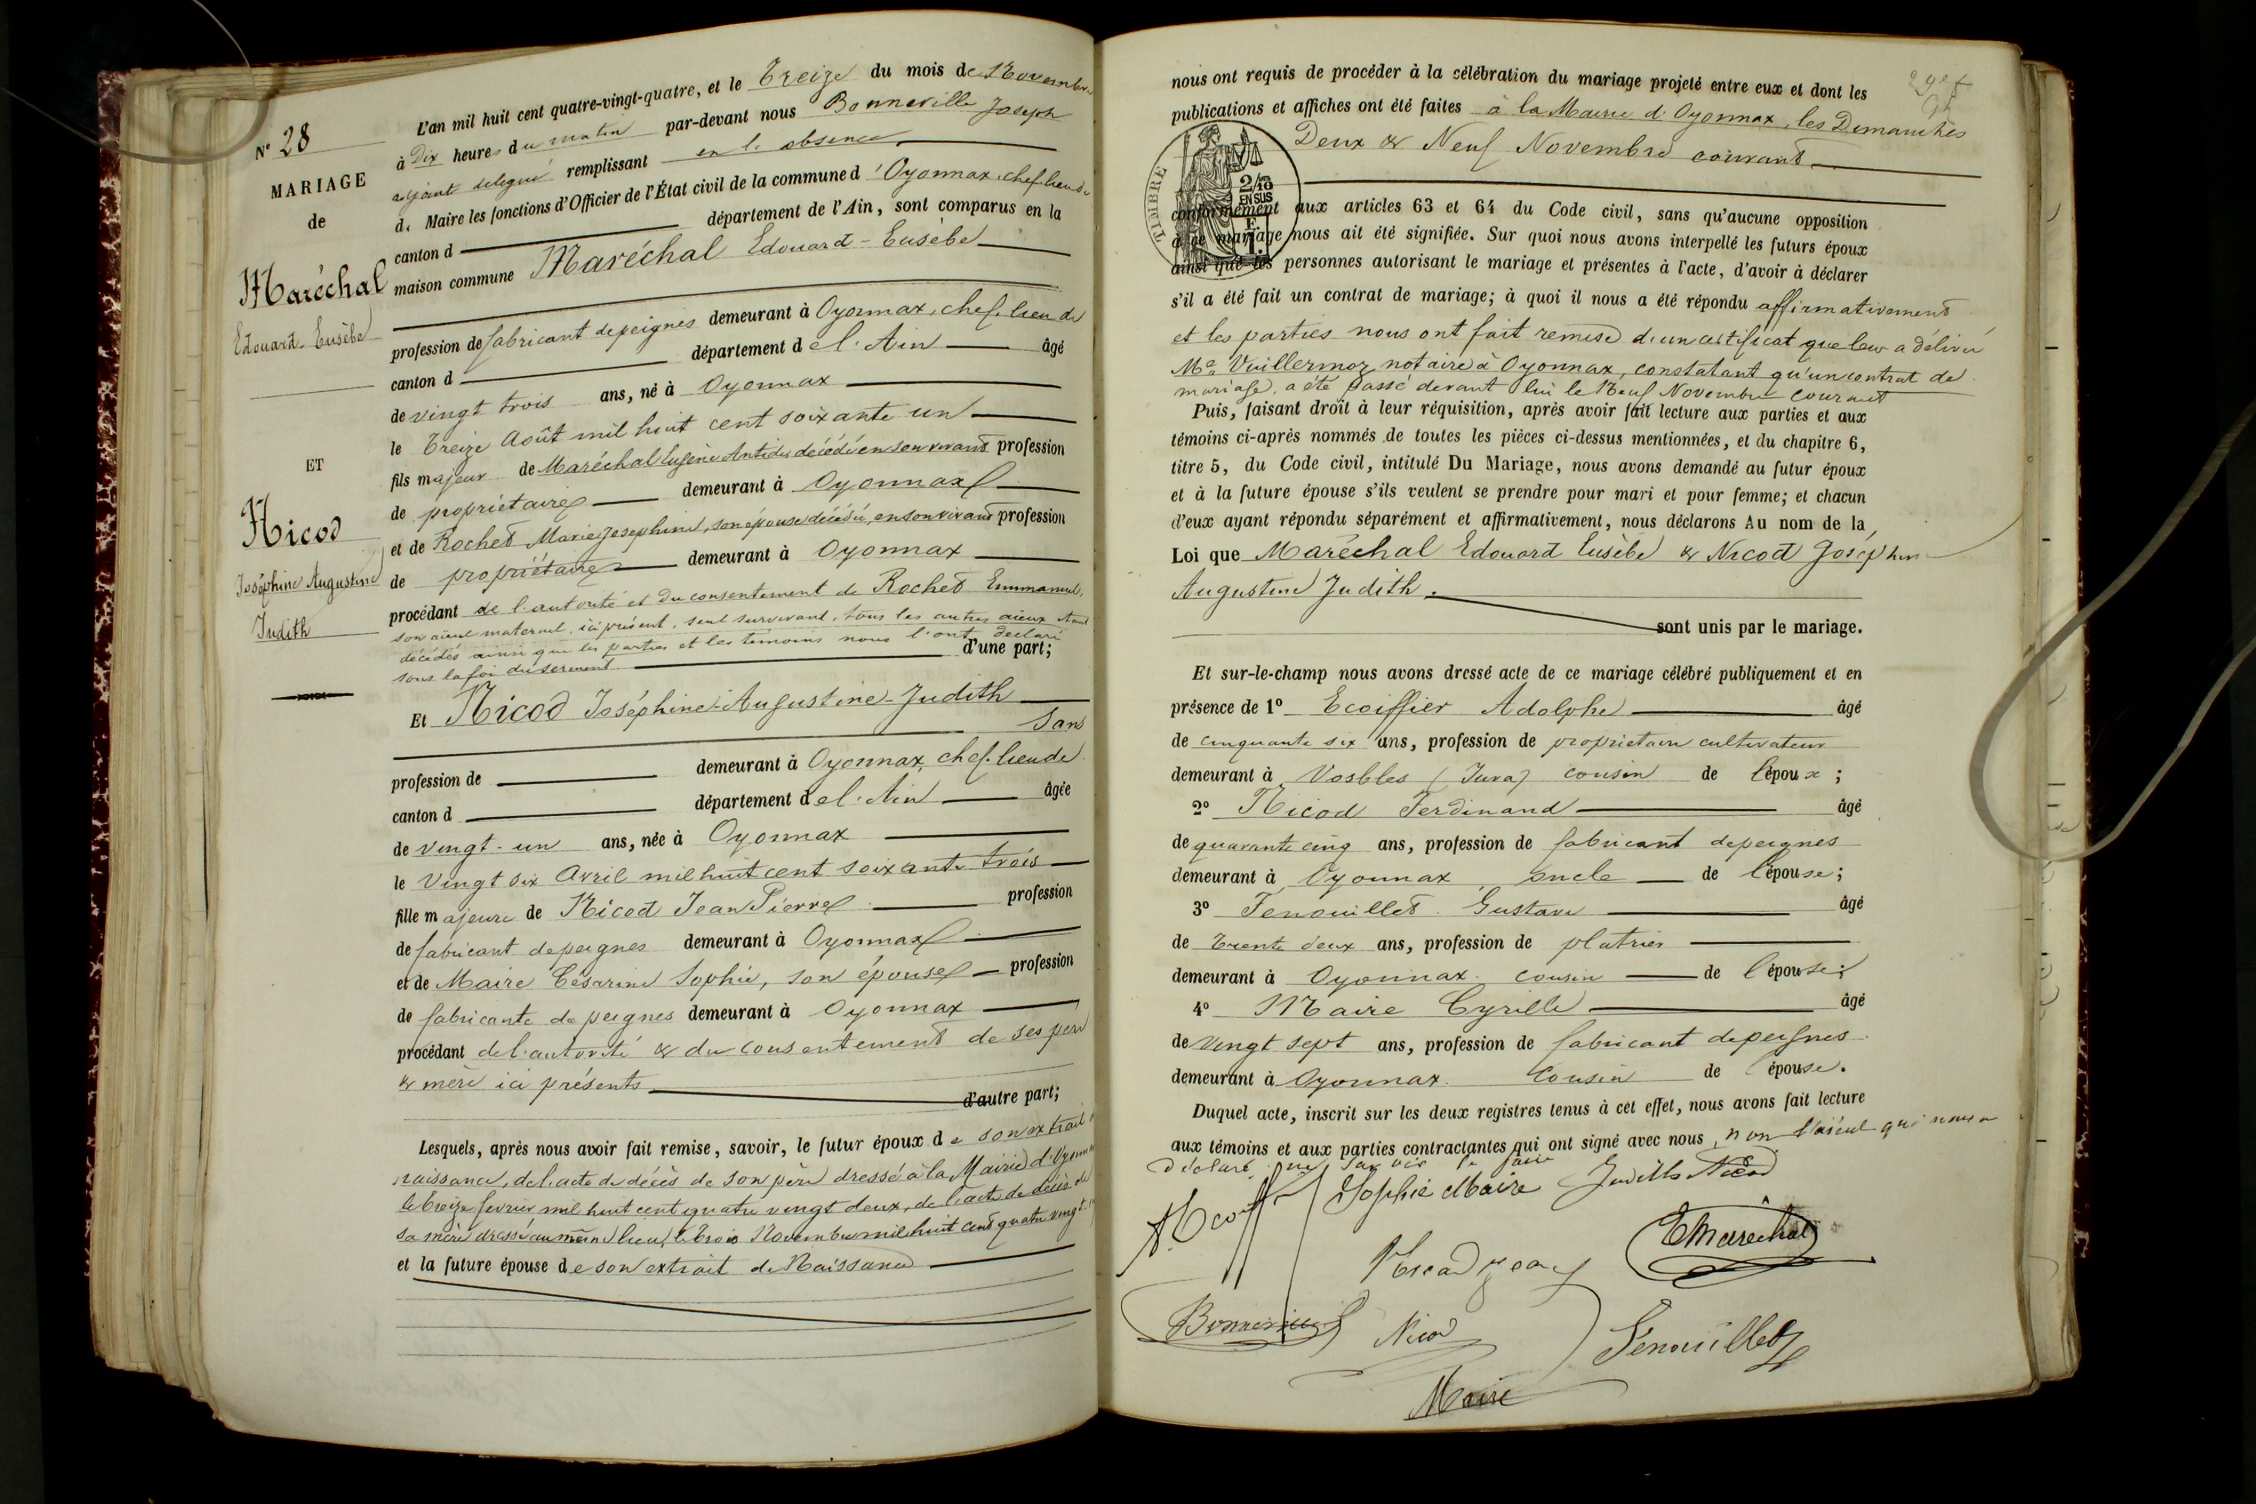 N° 28
MARIAGE
de
Maréchal
Edouard-Eusèbe
ET
Nicod
Joséphine Augustine
Judith
L'an mil huit cent quatre-vingt-quatre, et le Treize du mois de Novembre
à Dix heures du matin par-devant nous Bonneville Joseph
adjoint délégué remplissant en l' absence
d. Maire les fonctions d'Officier de l'État civil de la commune d'Oyonnax, chef-lieu de
canton d département de l'Ain, sont comparus en la
maison commune Maréchal Edouard-Eusèbe
profession de fabricant de peignes demeurant à Oyonnax, chef-lieu de
canton d département de l'Ain âgé
de vingt trois ans, né à Oyonnax
le Treize Août mil huit cent soixante un
fils majeur de Maréchal Eugène Antide décédé en son vivant profession
de propriétaire demeurant à Oyonnax
et de Rochet Marie Josephine, son épouse décédée, en son vivant profession
de propriétaire demeurant à Oyonnax
procédant de l'autorité et du consentement de Rochet Emmanuel,
son aïeul maternel, ici présent, seul survivant, tous les autres aïeux étant
décédés ainsi que les parties et les témoins nous l'ont déclaré
sous la foi du serment d'une part;
Et Nicod Joséphine-Augustine-Judith
sans
profession de demeurant à Oyonnax, chef-lieu de
canton d département de l'Ain âgée
de vingt-un ans, née à Oyonnax
le Vingt six Avril mil huit cent soixante trois
fille majeure de Nicod Jean Pierre profession
de fabricant de peignes demeurant à Oyonnax
et de Maire Césarine Sophie, son épouse profession
de fabricante de peignes demeurant à Oyonnax
procédant de l'autorité & du consentement de ses père
& mère ici présents
d'autre part;
Lesquels, après nous avoir fait remise, savoir, le futur époux de son extrait
naissance, de l'acte de décès de son père dressé à la Mairie d'Oyonnax
le treize février mil huit cent quatre vingt deux, de l'acte de décès de
sa mère dressé au même lieu, le trois Novembre mil huit cent quatre vingt
et la future épouse de son extrait de Naissance
nous ont requis de procéder à la célébration du mariage projeté entre eux et dont les
publications et affiches ont été faites à la Mairie d'Oyonnax, les Dimanches
Deux & Neuf Novembre courant
TIMBRE
2/10
EN SUS
conformément aux articles 63 et 64 du Code civil, sans qu'aucune opposition
à ce mariage nous ait été signifiée. Sur quoi nous avons interpellé les futurs époux
ainsi que les personnes autorisant le mariage et présentes à l'acte, d'avoir à déclarer
s'il a été fait un contrat de mariage; à quoi il nous a été répondu affirmativement
et les parties nous ont fait remise d'un certificat que leur a délivré
Me Vuillermoz notaire à Oyonnax, constatant qu'un contrat de
mariage a été passé devant lui le Neuf Novembre courant
Puis, faisant droit à leur réquisition, après avoir fait lecture aux parties et aux
témoins ci-après nommés de toutes les pièces ci-dessus mentionnées, et du chapitre 6,
titre 5, du Code civil, intitulé Du Mariage, nous avons demandé au futur époux
et à la future épouse s'ils veulent se prendre pour mari et pour femme; et chacun
d'eux ayant répondu séparément et affirmativement, nous déclarons Au nom de la
Loi que Maréchal Edouard Eusèbe & Nicod Joséphine
Augustine Judith.
sont unis par le mariage.
Et sur-le-champ nous avons dressé acte de ce mariage célébré publiquement et en
présence de 1° Ecoiffier Adolphe âgé
de cinquante six ans, profession de propriétaire cultivateur
demeurant à Vosbles (Jura) cousin de l'époux;
2° Nicod Ferdinand âgé
de quarante cinq ans, profession de fabricant de peignes
demeurant à Oyonnax, oncle de l'épouse;
3° Fenouillet Gustave âgé
de Trente deux ans, profession de platrier
demeurant à Oyonnax. cousin de l'épouse;
4° Maire Cyrille âgé
de vingt sept ans, profession de fabricant de peignes
demeurant à Oyonnax. Cousin de épouse.
Duquel acte, inscrit sur les deux registres tenus à cet effet, nous avons fait lecture
aux témoins et aux parties contractantes qui ont signé avec nous, non l'aïeul qui nous a
déclaré ne savoir le faire
Sophie Maire Judith Nicod
EMaréchal
Bonneville
Nicod
Fenouillet
Maire